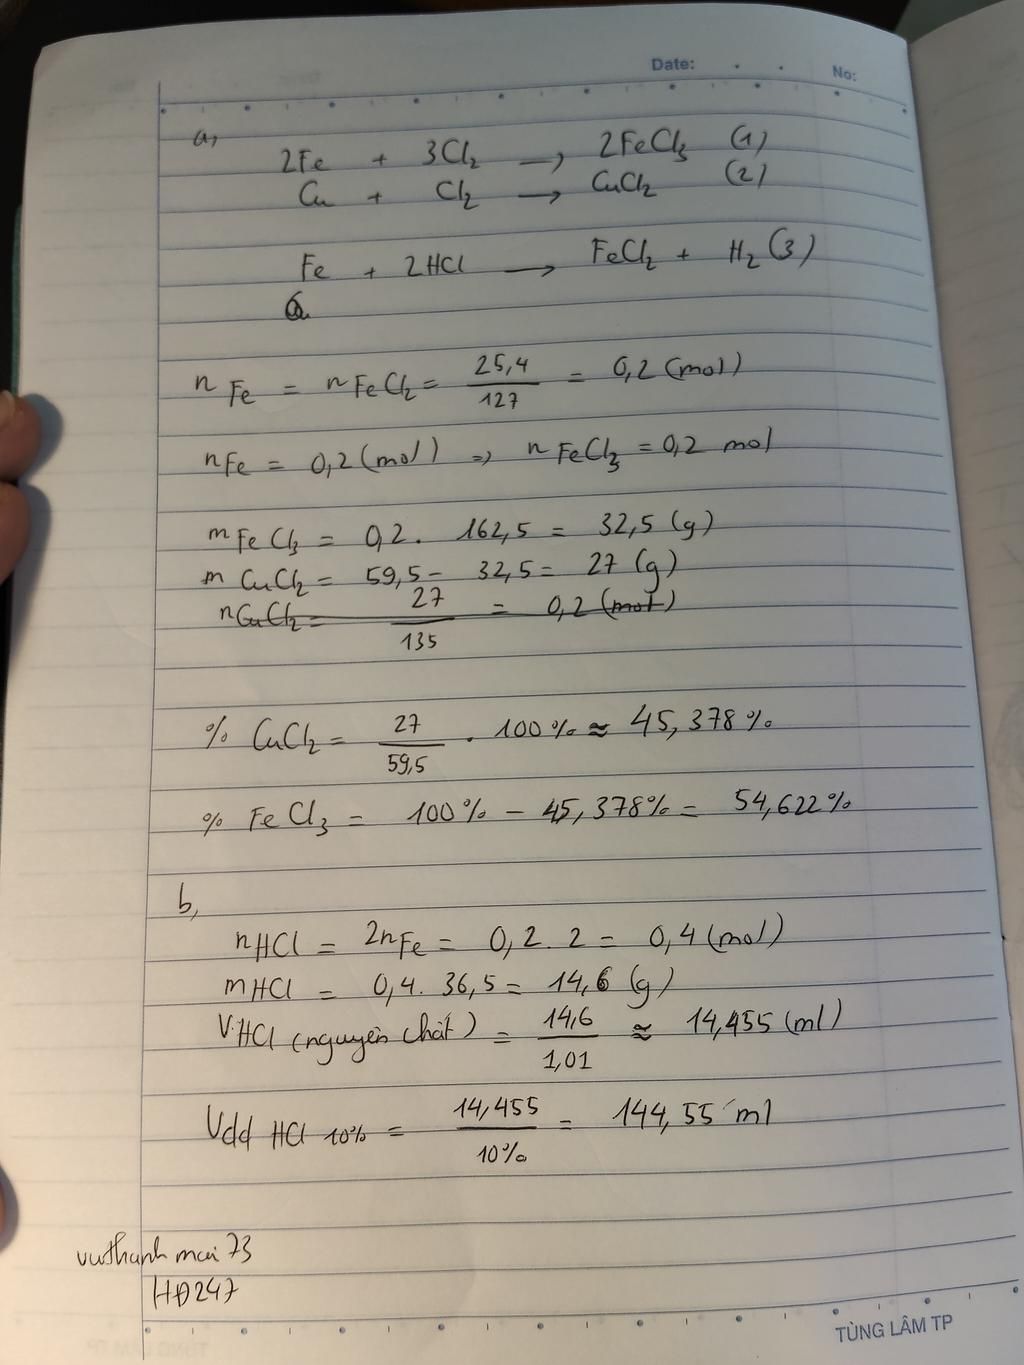 Date:
No:
a,
2Fe + 3Cl₂ → 2FeCl₃ (1)
Cu + Cl₂ → CuCl₂ (2)
Fe + 2HCl → FeCl₂ + H₂ (3)
n Fe = n FeCl₂ = 25,4 / 127 = 0,2 (mol)
nFe = 0,2 (mol) => n FeCl₃ = 0,2 mol
m FeCl₃ = 0,2 . 162,5 = 32,5 (g)
m CuCl₂ = 59,5 - 32,5 = 27 (g)
nCuCl₂ = 27 / 135 = 0,2 (mol)
% CuCl₂ = 27 / 59,5 . 100% ≈ 45,378%
% FeCl₃ = 100% - 45,378% = 54,622%
b,
nHCl = 2nFe = 0,2 . 2 = 0,4 (mol)
mHCl = 0,4 . 36,5 = 14,6 (g)
V.HCl (nguyên chất) = 14,6 / 1,01 ≈ 14,455 (ml)
Vdd HCl 10% = 14,455 / 10% = 144,55 ml
vuthanh mai 73
HĐ247
TÙNG LÂM TP